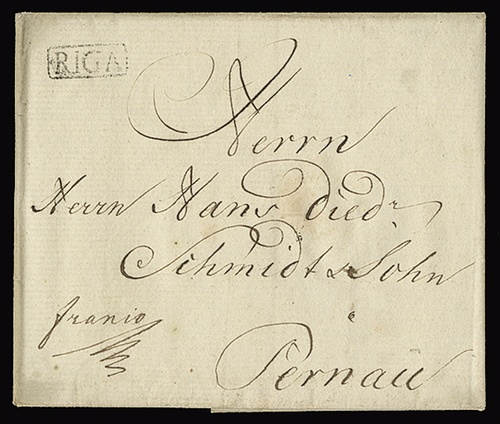 RIGA
Herrn
Herrn Hans Diedr
Schmidt & Sohn
franco
Pernau